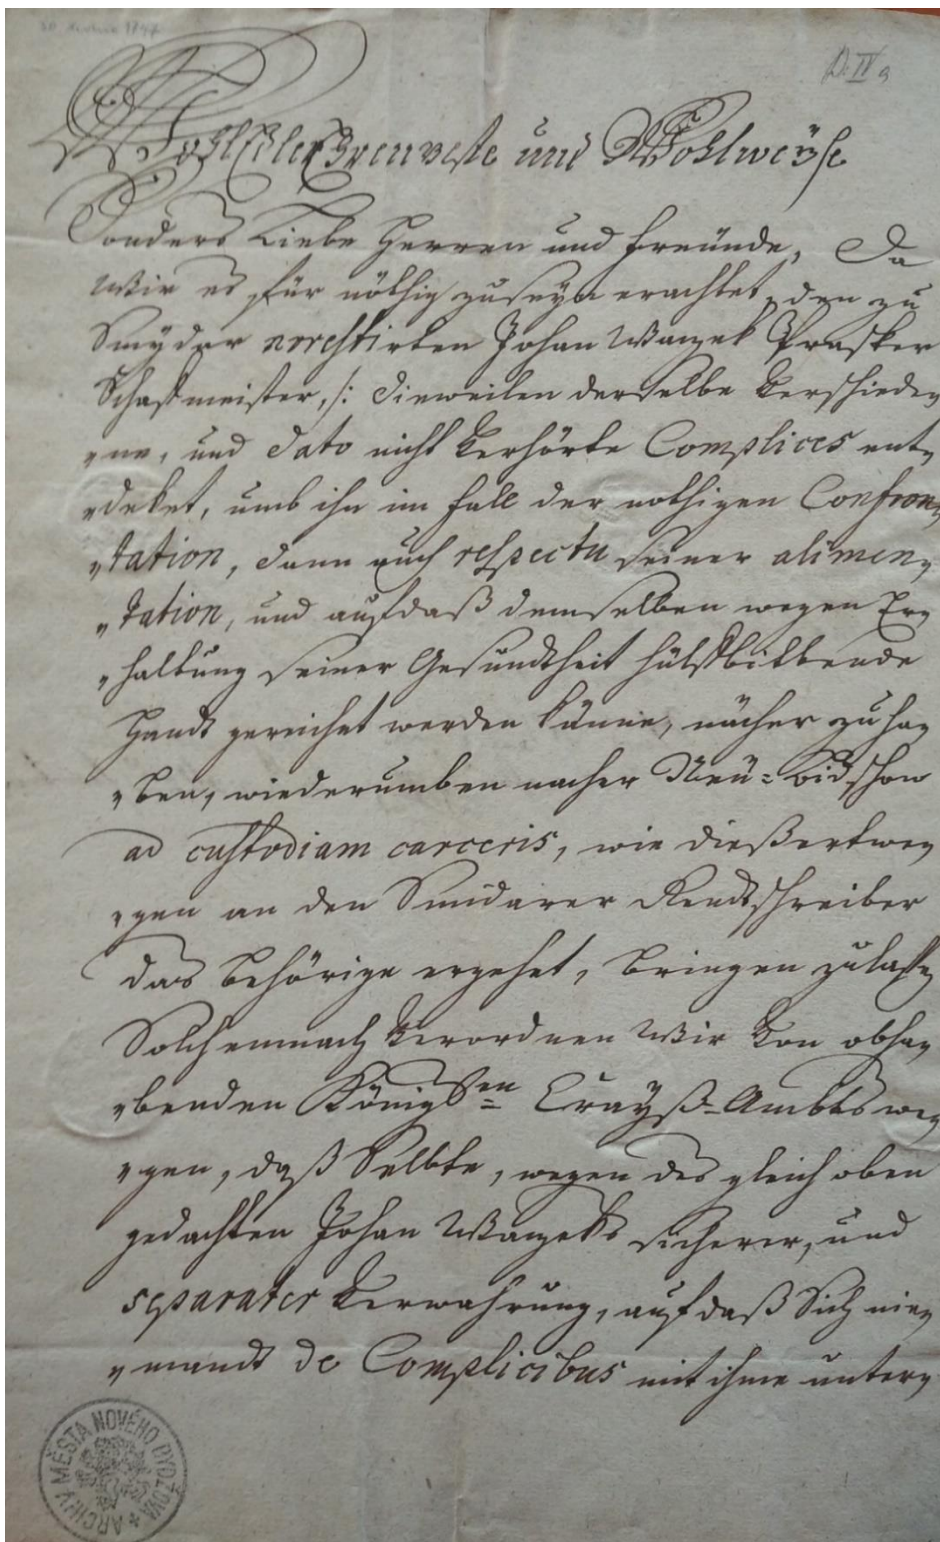 D. IV a
WohlEdler Ehrenveste und Wohlweÿse
Sonders Liebe Herren und Freünde, Da
Wir es für nöthig zuseyn erachtet, den zu
Smÿdar arrestirten Johan Wanzek Prasker
Schafmeister, /: dieweilen derselbe verschiede„
„ne, und dato nicht verhörte Complices ent„
„deket, umb ihn im fall der nöthigen Confron„
„tation, dann auch respectu seiner alimen„
„tation, und aufdaß demselben wegen Er„
„haltung seiner Gesundtheit hülfbittende
Handt gereichet werden könne, näher zu ha„
„ben, wiederumben nacher Neü=Bidschow
ad custodiam carceris, wie dießertwe„
„gen an den Smidarer Rendtschreiber
das behörige ergehet, bringen zulaßen
Solchemnach verordnen Wir von obha„
„benden Königlen Crayß-Ambts we„
„gen, daß Selbte, wegen des gleich oben
gedachten Johan Wanzeks sicherer, und
separater Verwahrung, aufdaß Sich nie„
„mandt de Complicibus mit ihme unter„
ARCHIV MĚSTA NOVÉHO BYDŽOVA